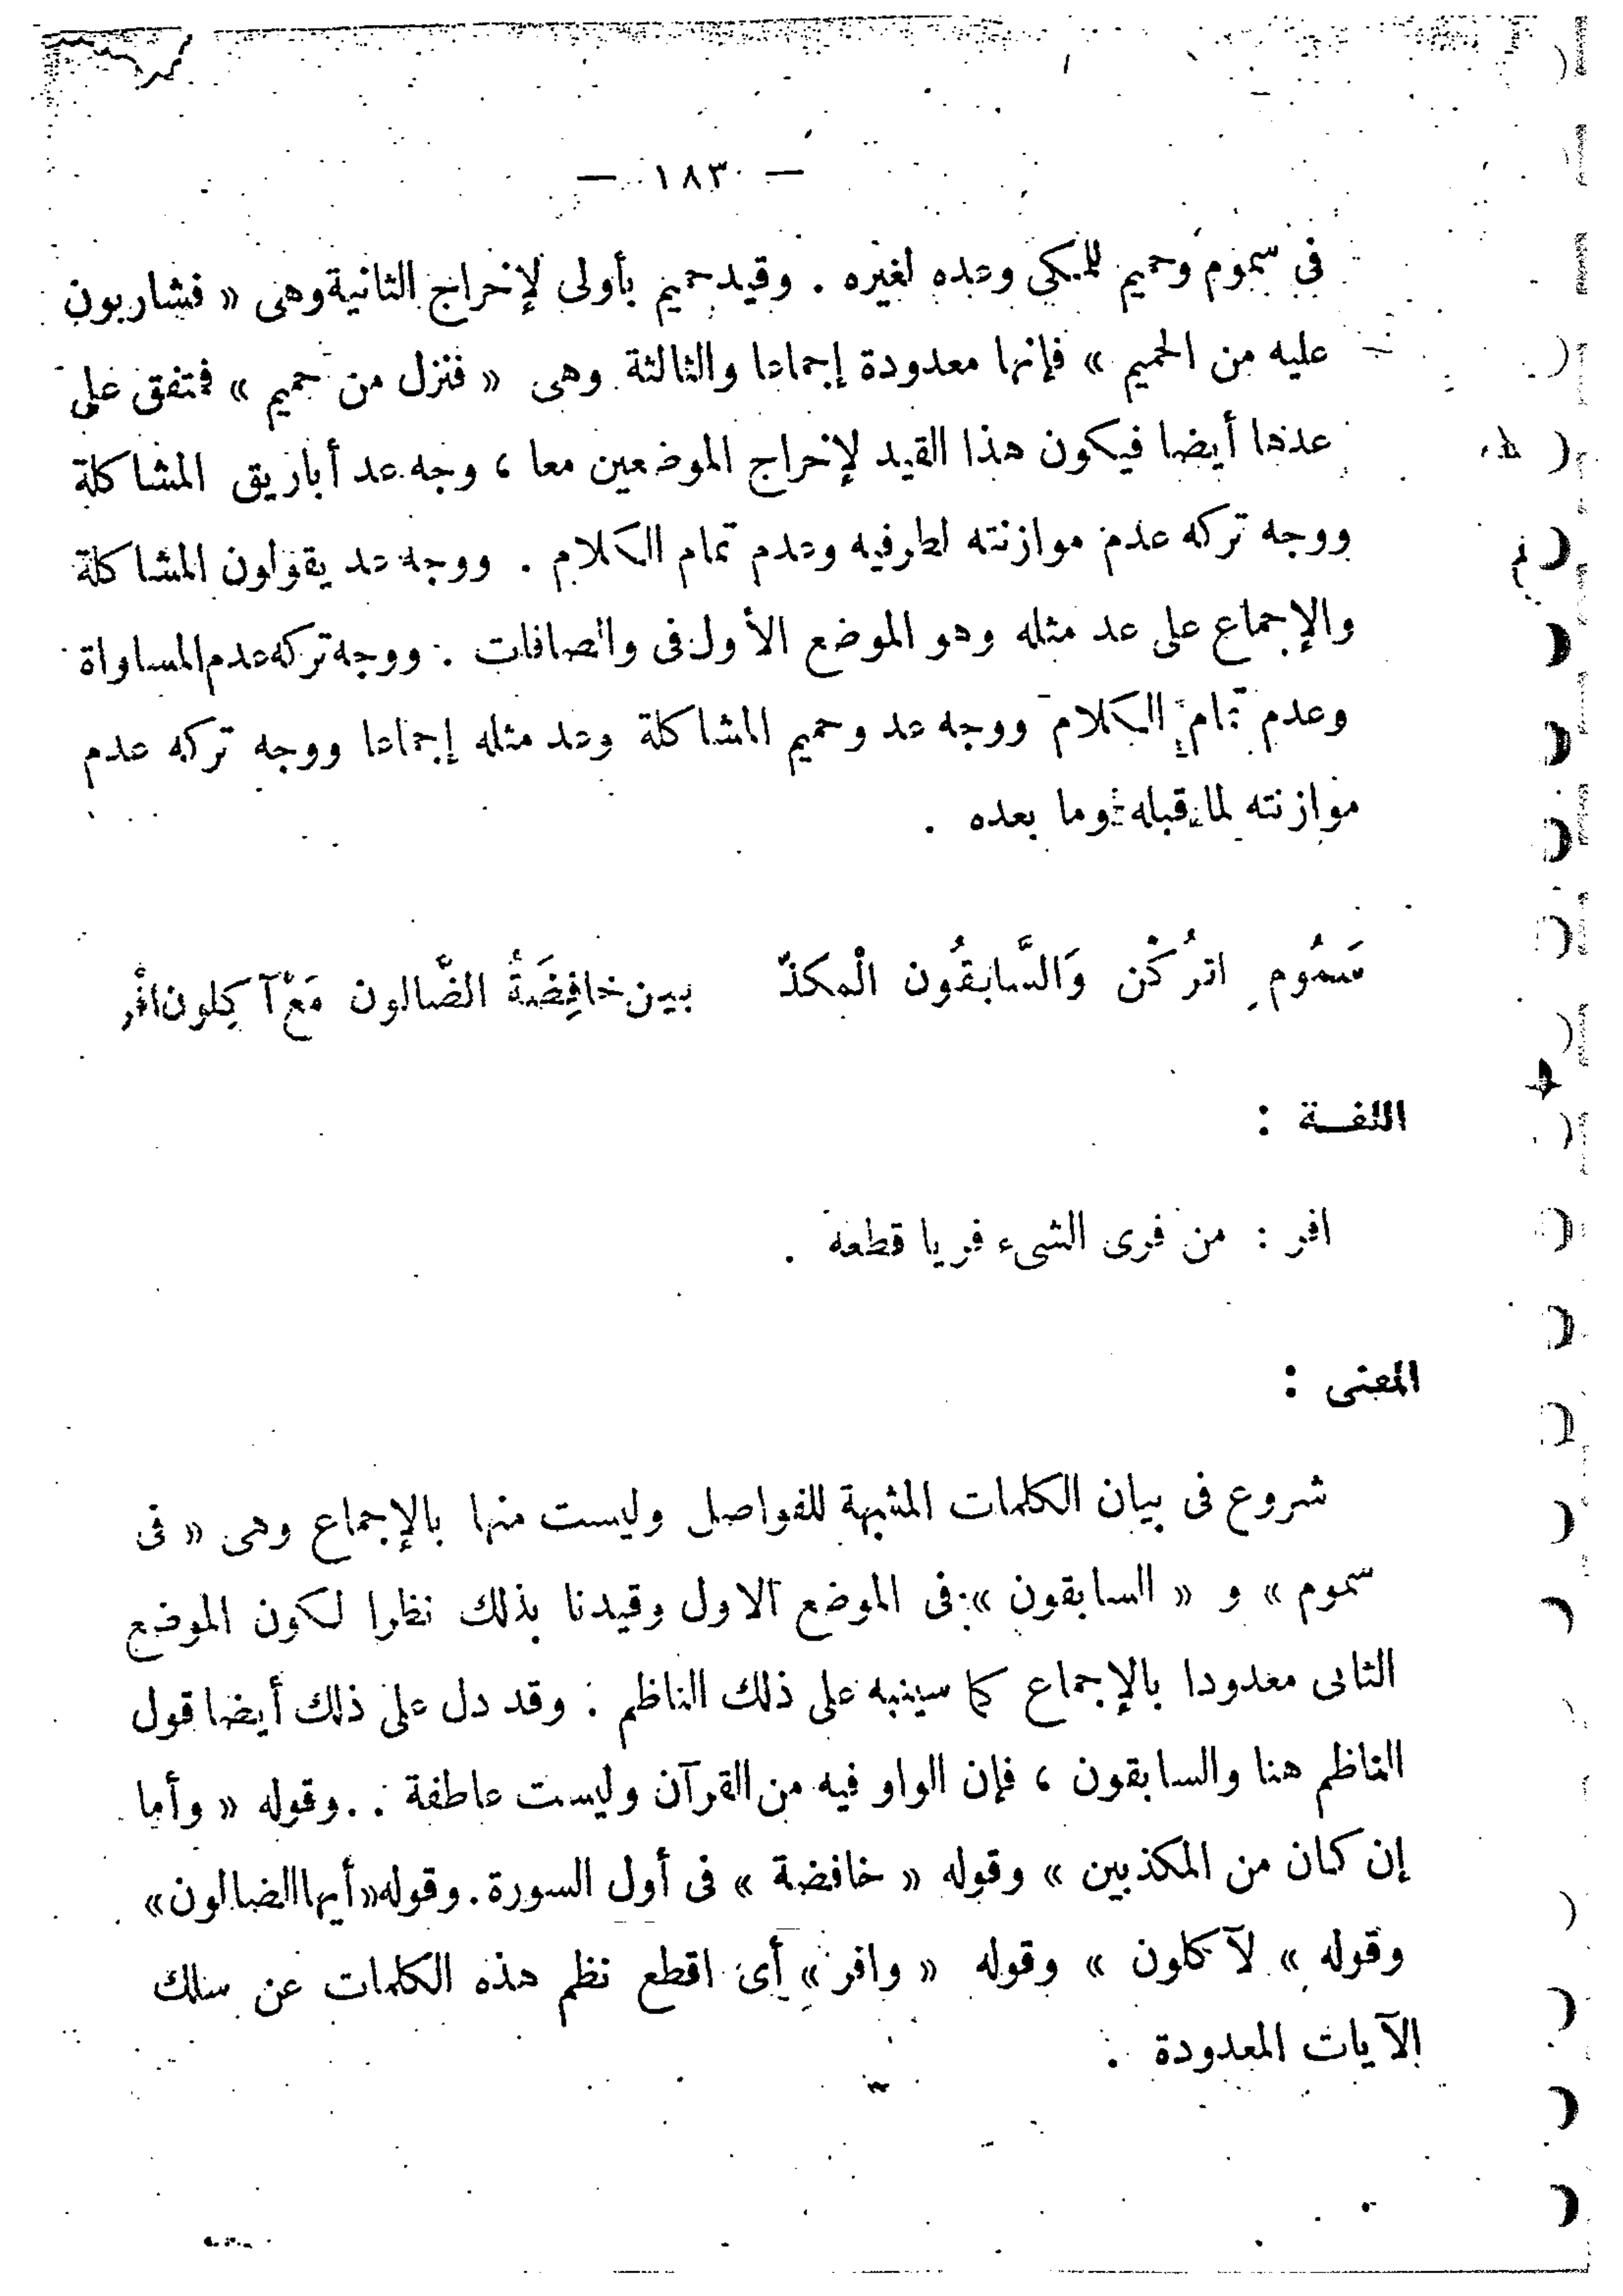 — ١٨٣ —
فى سموم وحميم للمكى وعده لغيره . وقيد حميم بأولى لإخراج الثانية وهى « فشاربون
عليه من الحميم » فإنها معدودة إجماعا والثالثة وهى « فنزل من حميم » فمتفق على
عدها أيضا فيكون هذا القيد لإخراج الموضعين معا ، وجه عد أباريق المشاكلة
ووجه تركه عدم موازنته لطرفيه وعدم تمام الكلام . ووجه عد يقولون المشاكلة
والإجماع على عد مثله وهو الموضع الأول فى والصافات . ووجه تركه عدم المساواة
وعدم تمام الكلام ووجه عد وحميم المشاكلة وعد مثله إجماعا ووجه تركه عدم
موازنته لما قبله وما بعده .
سَمُوم اترُكْن وَالسَّابقُون الْمكذّ بين خافِضَةُ الضَّالون مَعْ آكِلون افْر
اللغـة :
افر : من فرى الشىء فريا قطعه .
المعنى :
شروع فى بيان الكلمات المشبهة للفواصل وليست منها بالإجماع وهى « فى
سموم » و « السابقون » فى الموضع الاول وقيدنا بذلك نظرا لكون الموضع
الثانى معدودا بالإجماع كما سينبه على ذلك الناظم . وقد دل على ذلك أيضا قول
الناظم هنا والسابقون ، فإن الواو فيه من القرآن وليست عاطفة . وقوله « وأما
إن كان من المكذبين » وقوله « خافضة » فى أول السورة . وقوله « أيها الضالون »
وقوله » لآكلون » وقوله « وافر » أى اقطع نظم هذه الكلمات عن سلك
الآيات المعدودة .